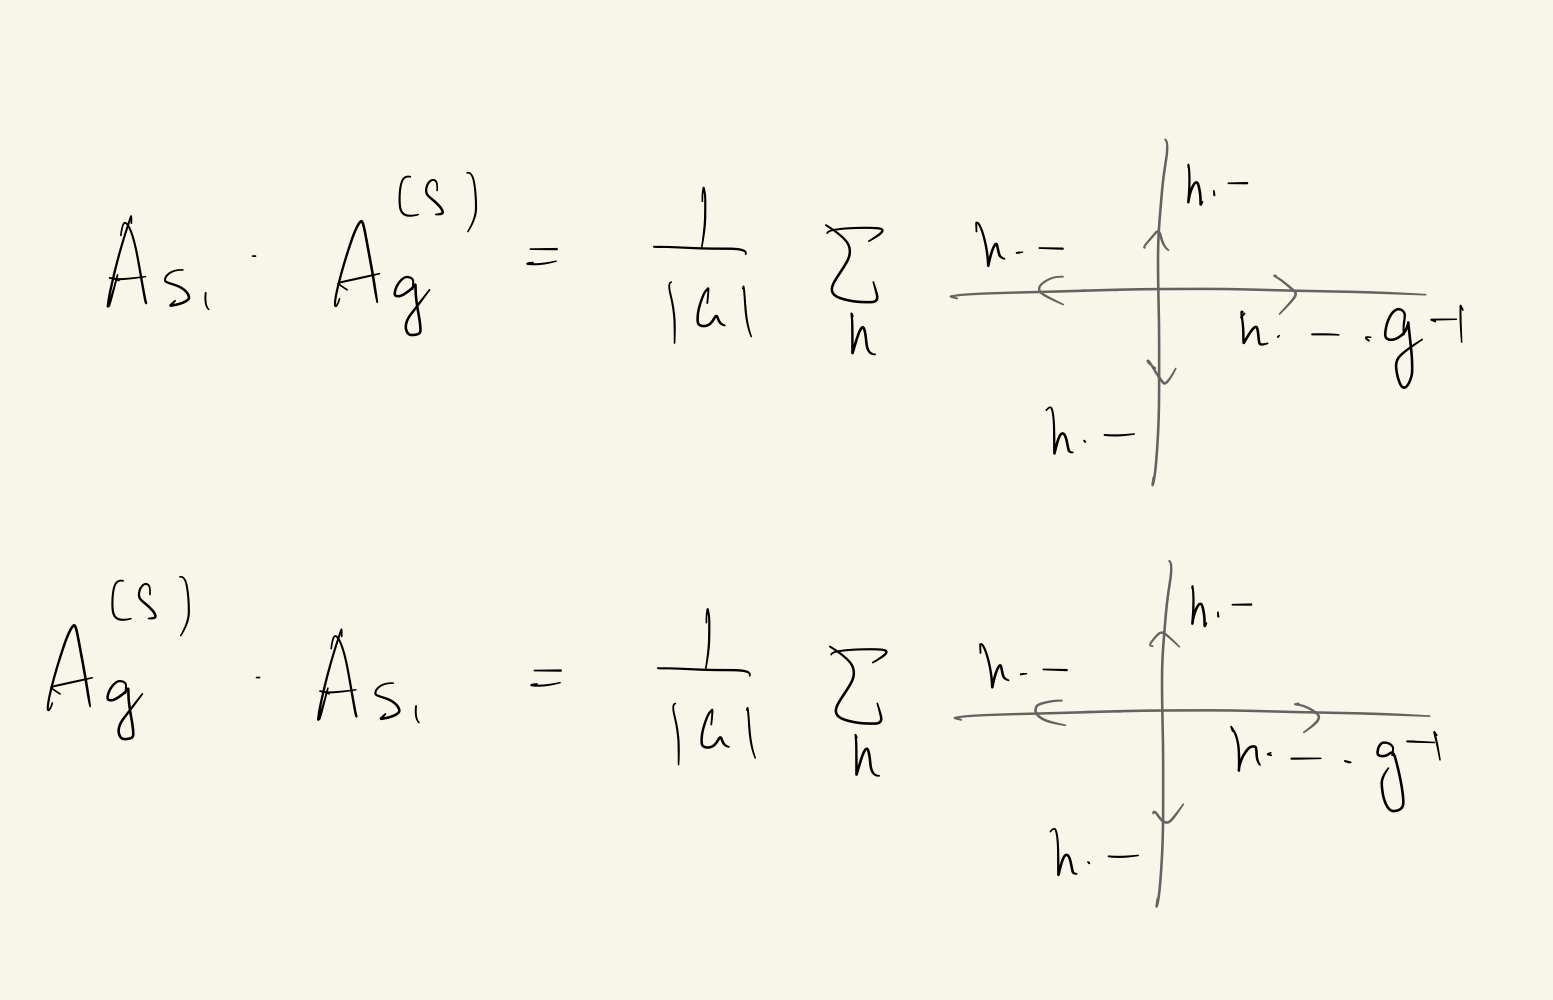 A_{s_1} · A_g^{(s)} = \frac{1}{|G|} \sum_h h·– h·– h·–·g^{-1} h·–
A_g^{(s)} · A_{s_1} = \frac{1}{|G|} \sum_h h·– h·– h·–·g^{-1} h·–